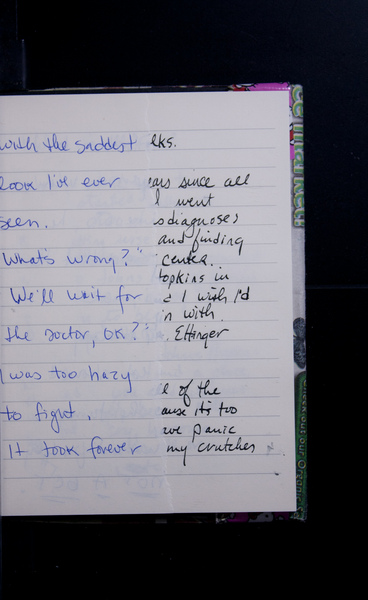 with the saddest
look I've ever
seen.
"What's wrong?"
We'll wait for
the doctor, ok?"
I was too hazy
to fight.
It took forever
lks.
ars since all
I went
sdiagnoses
and finding
center.
opkins in
I wish I'd
n with.
Ettinger
l of the
ause it's too
ave panic
my crutches